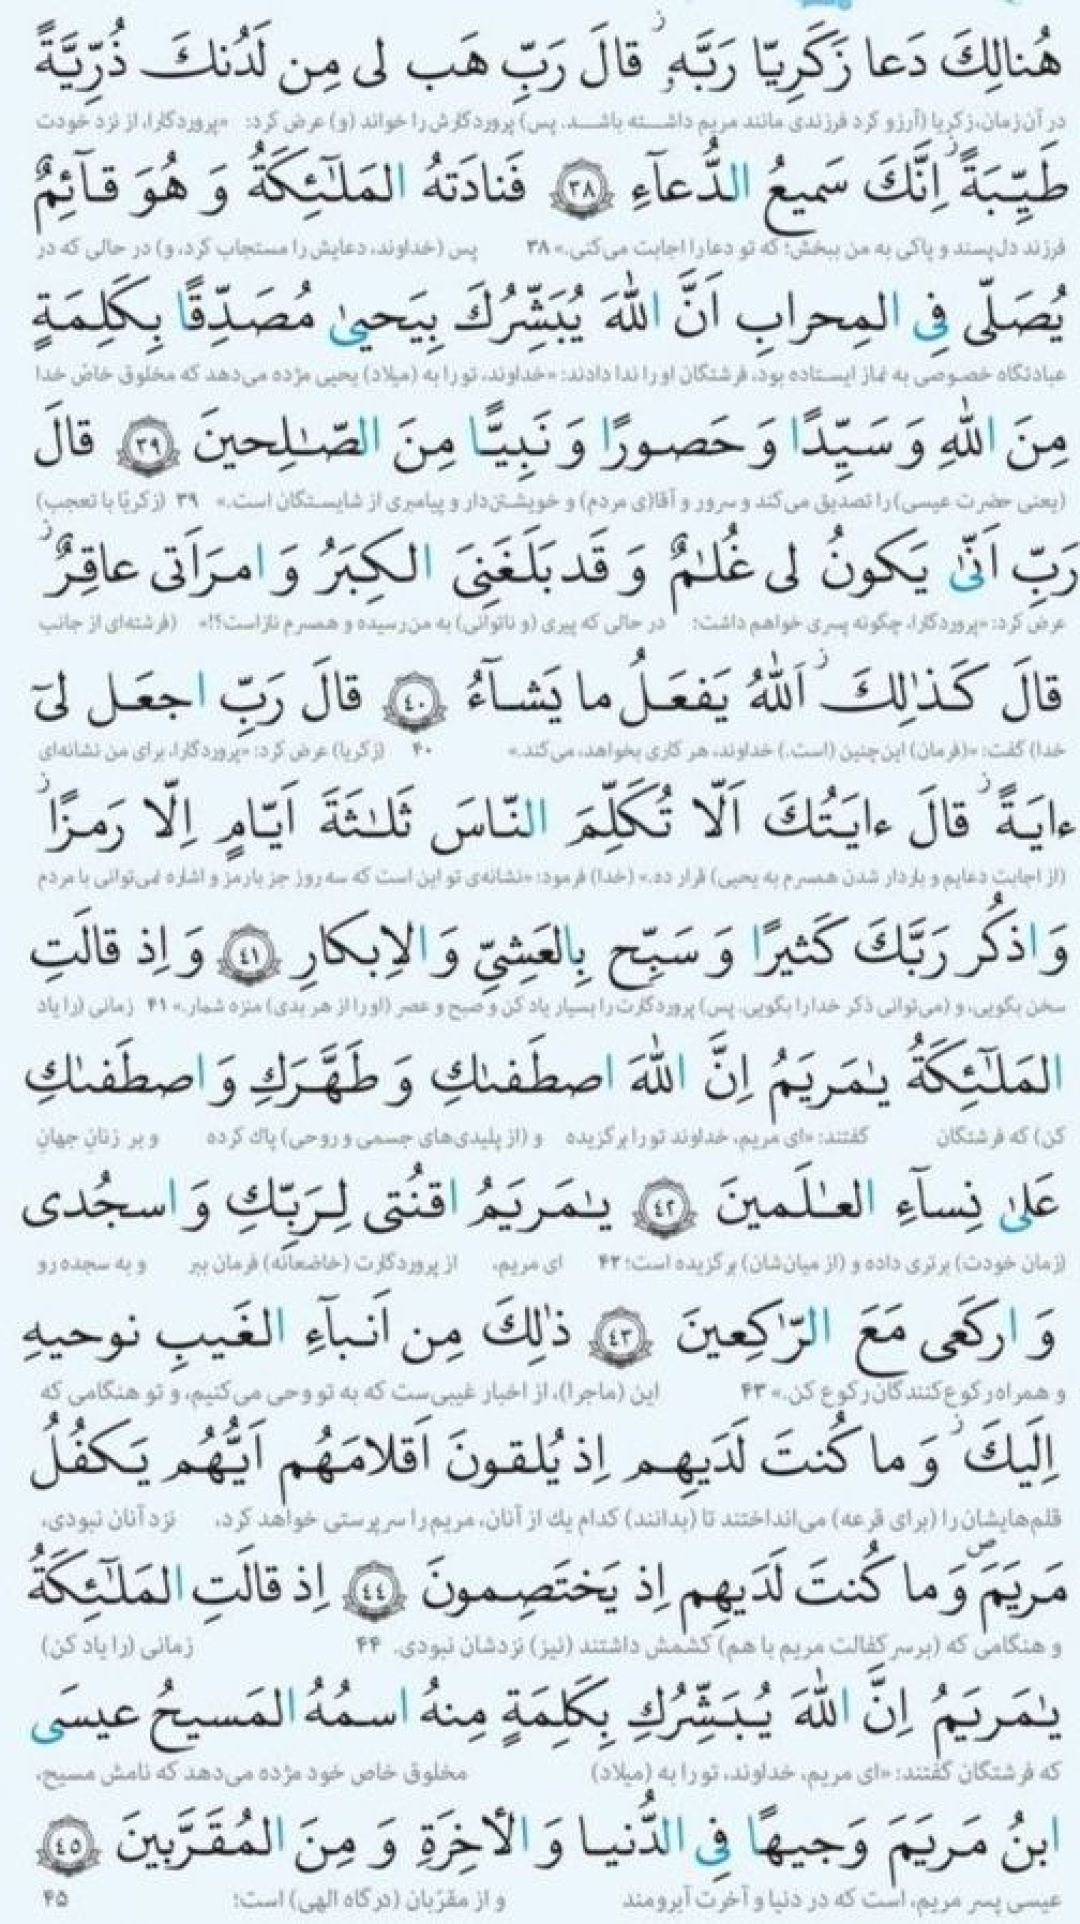 هُنالِكَ دَعا زَكَرِيّا رَبَّهۥ ز قالَ رَبِّ هَب لى مِن لَدُنكَ ذُرِّيَّةً
در آن زمان، زکریا (آرزو کرد فرزندی مانند مریم داشته باشد. پس) پروردگارش را خواند (و) عرض کرد: «پروردگارا، از نزد خودت
طَيِّبَةً ز اِنَّكَ سَميعُ الدُّعآءِ ﴿٣٨﴾ فَنادَتهُ المَلٰٓئِكَةُ وَ هُوَ قآئِمٌ
فرزند دل‌پسند و پاکی به من ببخش؛ که تو دعا را اجابت می‌کنی.» ۳۸ پس (خداوند، دعایش را مستجاب کرد، و) در حالی که در
يُصَلّى فِى المِحرابِ اَنَّ اللّٰهَ يُبَشِّرُكَ بِيَحيىٰ مُصَدِّقًا بِكَلِمَةٍ
عبادتگاه خصوصی به نماز ایستاده بود، فرشتگان او را ندا دادند: «خداوند، تو را به (میلاد) یحیی مژده می‌دهد که مخلوق خاصّ خدا
مِنَ اللّٰهِ وَ سَيِّدًا وَ حَصورًا وَ نَبِيًّا مِنَ الصّٰلِحينَ ﴿٣٩﴾ قالَ
(یعنی حضرت عیسی) را تصدیق می‌کند و سرور و آقا(ی مردم) و خویشتن‌دار و پیامبری از شایستگان است.» ۳۹ (زکریّا با تعجب)
رَبِّ اَنّىٰ يَكونُ لى غُلٰمٌ وَ قَد بَلَغَنِىَ الكِبَرُ وَ امرَاَتى عاقِرٌ ز
عرض کرد: «پروردگارا، چگونه پسری خواهم داشت؛ در حالی که پیری (و ناتوانی) به من رسیده و همسرم نازاست؟!» (فرشته‌ای از جانب
قالَ كَذٰلِكَ ز اَللّٰهُ يَفعَلُ ما يَشآءُ ﴿٤٠﴾ قالَ رَبِّ اجعَل لىٓ
خدا) گفت: «(فرمان) این‌چنین (است.) خداوند، هر کاری بخواهد، می‌کند.» ۴۰ (زکریا) عرض کرد: «پروردگارا، برای من نشانه‌ای
ءايَةً ز قالَ ءايَتُكَ اَلّا تُكَلِّمَ النّاسَ ثَلٰثَةَ اَيّامٍ اِلّا رَمزًا ز
(از اجابت دعایم و باردار شدن همسرم به یحیی) قرار ده.» (خدا) فرمود: «نشانه‌ی تو این است که سه روز جز با رمز و اشاره نمی‌توانی با مردم
وَ اذكُر رَبَّكَ كَثيرًا وَ سَبِّح بِالعَشِىِّ وَ الاِبكارِ ﴿٤١﴾ وَ اِذ قالَتِ
سخن بگویی، و (می‌توانی ذکر خدا را بگویی. پس) پروردگارت را بسیار یاد کن و صبح و عصر (او را از هر بدی) منزه شمار.» ۴۱ زمانی (را یاد
المَلٰٓئِكَةُ يٰمَريَمُ اِنَّ اللّٰهَ اصطَفىٰكِ وَ طَهَّرَكِ وَ اصطَفىٰكِ
کن) که فرشتگان گفتند: «ای مریم، خداوند تو را برگزیده و (از پلیدی‌های جسمی و روحی) پاک کرده و بر زنانِ جهانِ
عَلىٰ نِسآءِ العٰلَمينَ ﴿٤٢﴾ يٰمَريَمُ اقنُتى لِرَبِّكِ وَ اسجُدى
(زمان خودت) برتری داده و (از میان‌شان) برگزیده است؛ ۴۲ ای مریم، از پروردگارت (خاضعانه) فرمان ببر و به سجده رو
وَ اركَعى مَعَ الرّٰكِعينَ ﴿٤٣﴾ ذٰلِكَ مِن اَنبآءِ الغَيبِ نوحيهِ
و همراه رکوع‌کنندگان رکوع کن.» ۴۳ این (ماجرا)، از اخبار غیبی‌ست که به تو وحی می‌کنیم، و تو هنگامی که
اِلَيكَ ز وَ ما كُنتَ لَدَيهِم اِذ يُلقونَ اَقلامَهُم اَيُّهُم يَكفُلُ
قلم‌هایشان را (برای قرعه) می‌انداختند تا (بدانند) کدام یک از آنان، مریم را سرپرستی خواهد کرد، نزد آنان نبودی،
مَريَمَ ص وَ ما كُنتَ لَدَيهِم اِذ يَختَصِمونَ ﴿٤٤﴾ اِذ قالَتِ المَلٰٓئِكَةُ
و هنگامی که (بر سر کفالت مریم با هم) کشمش داشتند (نیز) نزدشان نبودی. ۴۴ زمانی (را یاد کن)
يٰمَريَمُ اِنَّ اللّٰهَ يُبَشِّرُكِ بِكَلِمَةٍ مِنهُ اسمُهُ المَسيحُ عيسَى
که فرشتگان گفتند: «ای مریم، خداوند، تو را به (میلاد) مخلوق خاص خود مژده می‌دهد که نامش مسیح،
ابنُ مَريَمَ وَجيهًا فِى الدُّنيا وَ الأخِرَةِ وَ مِنَ المُقَرَّبينَ ﴿٤٥﴾
عیسی پسر مریم، است که در دنیا و آخرت آبرومند و از مقرّبان (درگاه الهی) است؛ ۴۵